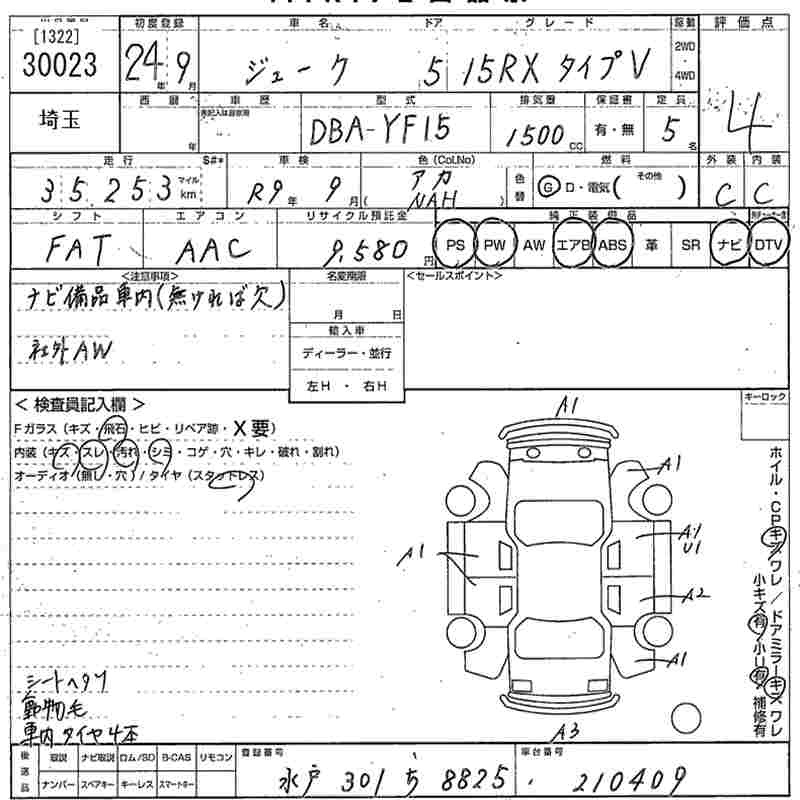 [1322]
30023
初度登録
24年 9月
車名 ドア グレード
ジューク 5 15RX タイプV
駆動
2WD
4WD
評価点
4
埼玉
西暦
年
車歴
型式
DBA-YF15
排気量
1500cc
保証書
有・無
定員
5名
走行
35,253 マイル km
S#*
車検
R9年 9月
色(Col.No)
アカ
(NAH)
色替
燃料
G D・電気( その他 )
外装 内装
C C
シフト
FAT
エアコン
AAC
リサイクル預託金
9,580円
純正装備品
PS PW AW エアB ABS 革 SR ナビ DTV
<注意事項>
ナビ備品車内(無ければ欠)
社外AW
名変期限
月 日
輸入車
ディーラー・並行
左H ・ 右H
<セールスポイント>
< 検査員記入欄 >
Fガラス(キズ・飛石・ヒビ・リペア跡・X要)
内装(キズ・スレ・汚れ・シミ・コゲ・穴・キレ・破れ・割れ)
オーディオ(無し・穴)/タイヤ(スタッドレス)
キーロック
A1
A1
A1
U1
A1
A2
A1
A3
ホイル・CPキズワレ/ドアミラーキズワレ
小キズ有 小U有 補修有
シートヘタリ
動物毛
車内タイヤ4本
後送品
取説 ナビ取説 ロム/SD B-CAS リモコン
ナンバー スペアキー キーレス スマートキー
登録番号
水戸 301 ち 8825
車台番号
210409